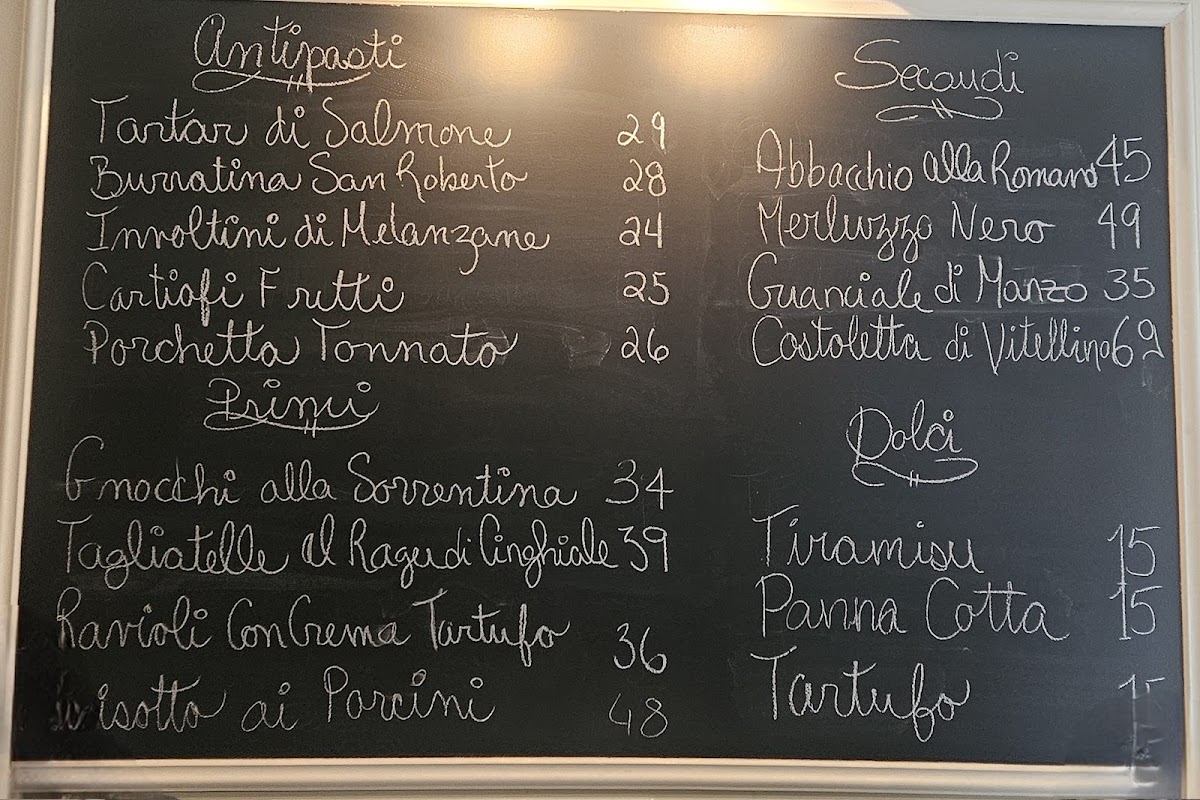 Antipasti
Tartar di Salmone 29
Burratina San Roberto 28
Involtini di Melanzane 24
Cartiofi Fritti 25
Porchetta Tonnato 26
Primi
Gnocchi alla Sorrentina 34
Tagliatelle al Ragu di Cinghiale 39
Ravioli Con Crema Tartufo 36
Risotto ai Porcini 48
Secondi
Abbacchio alla Romano 45
Merluzzo Nero 49
Guanciale di Manzo 35
Costoletta di Vitellino 69
Dolci
Tiramisu 15
Panna Cotta 15
Tartufo 15